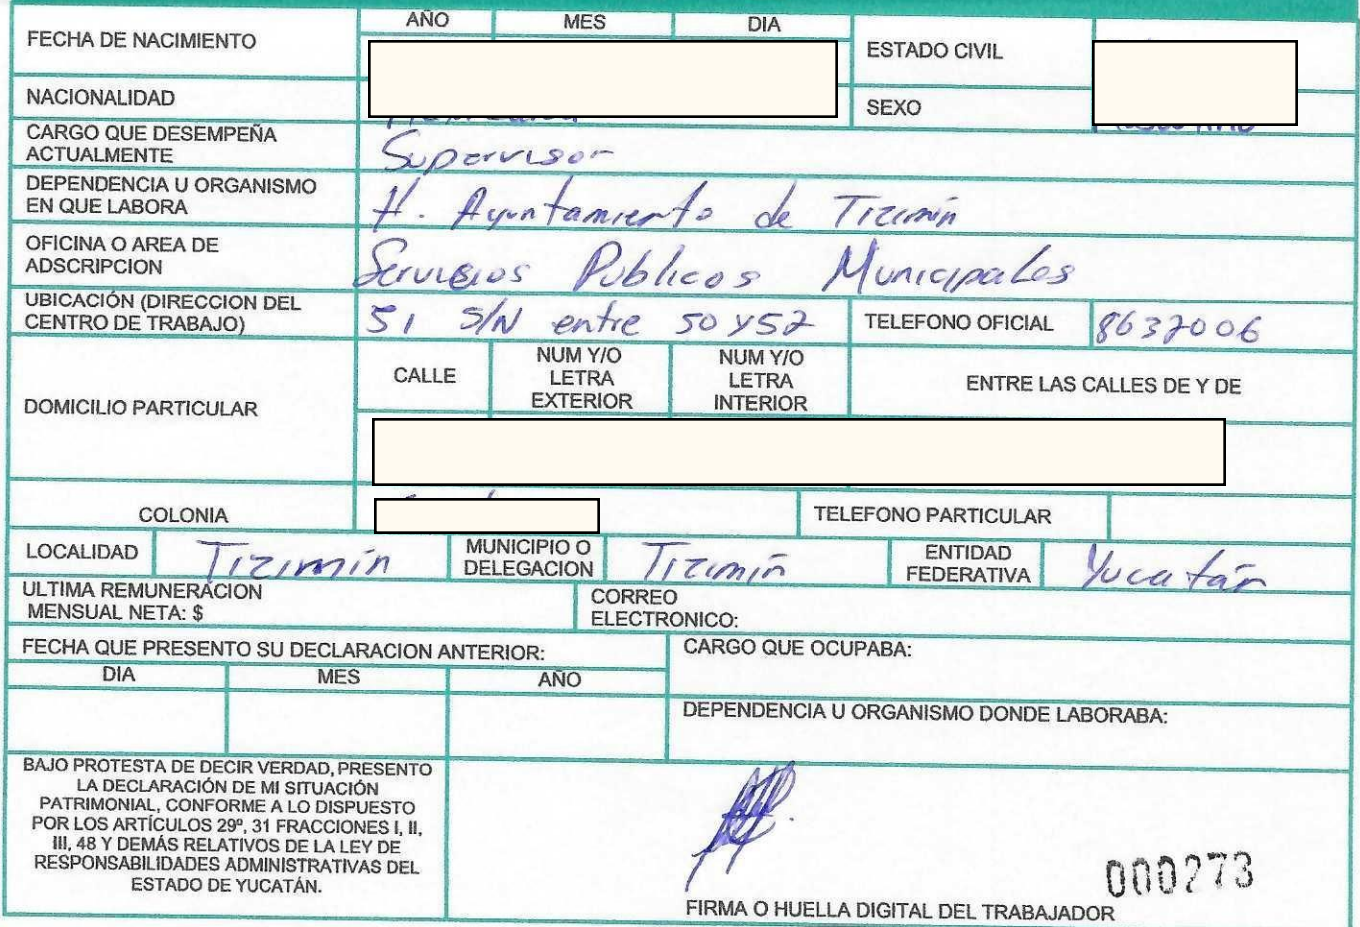 AÑO MES DIA
FECHA DE NACIMIENTO
ESTADO CIVIL
NACIONALIDAD
SEXO
CARGO QUE DESEMPEÑA
ACTUALMENTE
Supervisor
DEPENDENCIA U ORGANISMO
EN QUE LABORA
H. Ayuntamiento de Tizimín
OFICINA O AREA DE
ADSCRIPCION
Servicios Publicos Municipales
UBICACIÓN (DIRECCION DEL
CENTRO DE TRABAJO)
51 S/N entre 50 y 52
TELEFONO OFICIAL
8632006
DOMICILIO PARTICULAR
CALLE
NUM Y/O
LETRA
EXTERIOR
NUM Y/O
LETRA
INTERIOR
ENTRE LAS CALLES DE Y DE
COLONIA
TELEFONO PARTICULAR
LOCALIDAD
Tizimín
MUNICIPIO O
DELEGACION
Tizimín
ENTIDAD
FEDERATIVA
Yucatán
ULTIMA REMUNERACION
MENSUAL NETA: $
CORREO
ELECTRONICO:
FECHA QUE PRESENTO SU DECLARACION ANTERIOR:
DIA MES AÑO
CARGO QUE OCUPABA:
DEPENDENCIA U ORGANISMO DONDE LABORABA:
BAJO PROTESTA DE DECIR VERDAD, PRESENTO
LA DECLARACIÓN DE MI SITUACIÓN
PATRIMONIAL, CONFORME A LO DISPUESTO
POR LOS ARTÍCULOS 29º, 31 FRACCIONES I, II,
III, 48 Y DEMÁS RELATIVOS DE LA LEY DE
RESPONSABILIDADES ADMINISTRATIVAS DEL
ESTADO DE YUCATÁN.
000273
FIRMA O HUELLA DIGITAL DEL TRABAJADOR